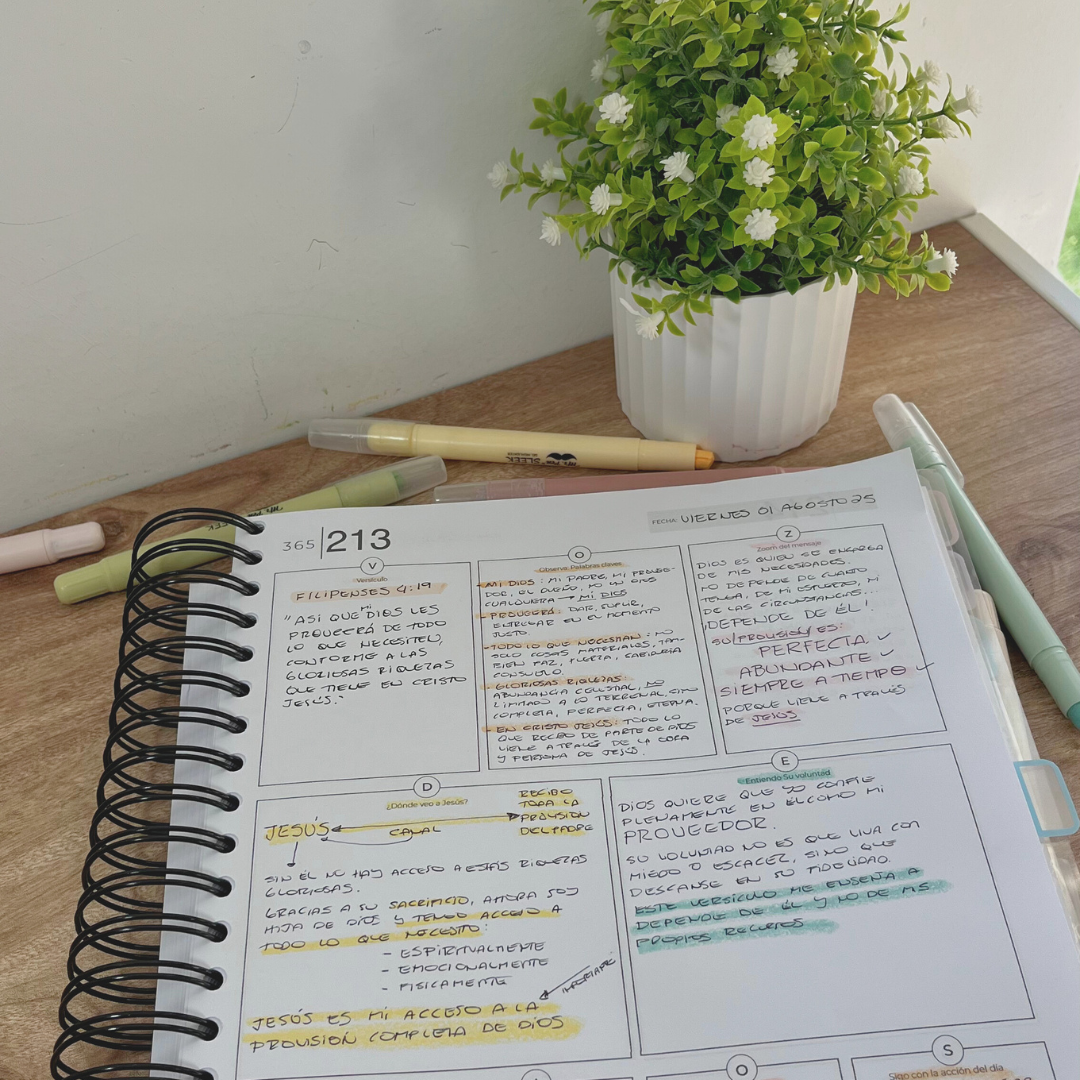 365 | 213
FECHA: VIERNES 01 AGOSTO 25
V
Versículo
FILIPENSES 4:19
"ASÍ QUE MI DIOS LES
PROVEERÁ DE TODO
LO QUE NECESITEN,
CONFORME A LAS
GLORIOSAS RIQUEZAS
QUE TIENE EN CRISTO
JESÚS."
O
Observo: Palabras claves
- MI DIOS: MI PADRE, MI PROVEE-
DOR, EL DUEÑO, NO UN DIOS
CUALQUIERA → MI DIOS
- PROVEERÁ: DAR, SUPLIR,
ENTREGAR EN EL MOMENTO
JUSTO.
- TODO LO QUE NECESITAN: NO
SOLO COSAS MATERIALES, TAM-
BIEN PAZ, FUERZA, SABIDURIA
CONSUELO.
- GLORIOSAS RIQUEZAS:
ABUNDANCIA CELESTIAL, NO
LIMITADO A LO TERRENAL, SINO
COMPLETA, PERFECTA, ETERNA.
- EN CRISTO JESÚS: TODO LO
QUE RECIBO DE PARTE DE DIOS
VIENE A TRAVÉS DE LA OBRA
Y PERSONA DE JESÚS.
Z
Zoom del mensaje
DIOS ES QUIEN SE ENCARGA
DE MIS NECESIDADES.
NO DEPENDE DE CUANTO
TENGA, DE MI ESFUERZO, NI
DE LAS CIRCUNSTANCIAS...
¡DEPENDE DE ÉL!
SU PROVISIÓN ES:
PERFECTA ✓
ABUNDANTE ✓
SIEMPRE A TIEMPO ✓
PORQUE VIENE A TRAVÉS
DE JESÚS
D
¿Dónde veo a Jesús?
JESÚS
CANAL
RECIBO
TODA LA
PROVISION
DEL PADRE
SIN ÉL NO HAY ACCESO A ESTAS RIQUEZAS
GLORIOSAS.
GRACIAS A SU SACRIFICIO, AHORA SOY
HIJA DE DIOS Y TENGO ACCESO A
TODO LO QUE NECESITO:
- ESPIRITUALMENTE
- EMOCIONALMENTE
- FISICAMENTE
IMPORTANTE
JESÚS ES MI ACCESO A LA
PROVISION COMPLETA DE DIOS
E
Entiendo Su voluntad
DIOS QUIERE QUE YO CONFIE
PLENAMENTE EN ÉL COMO MI
PROVEEDOR.
SU VOLUNTAD NO ES QUE VIVA CON
MIEDO O ESCACEZ, SINO QUE
DESCANSE EN SU FIDELIDAD.
ESTE VERSICULO ME ENSEÑA A
DEPENDER DE ÉL Y NO DE MIS
PROPIOS RECURSOS
O
S
Sigo con la acción del día
SLEEK